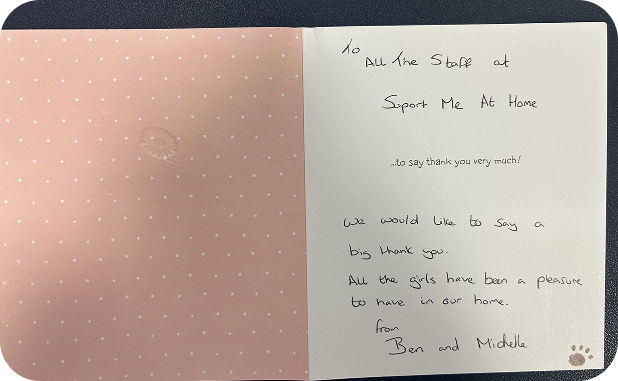 To
All The Staff at
Suport Me At Home
...to say thank you very much!
We would like to say a
big thank you.
All the girls have been a pleasure
to have in our home.
from
Ben and Michelle